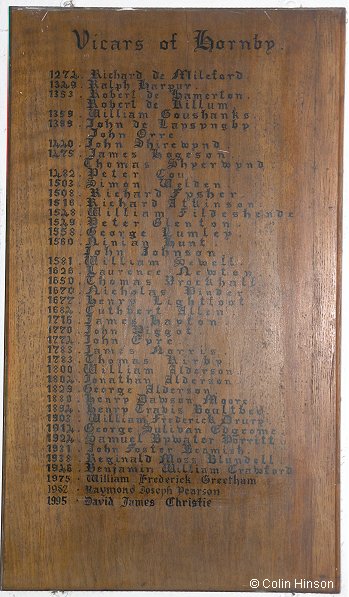 Vicars of Hornby.
1272. Richard de Mileford
1329. Ralph Harpur.
1353. Robert de Hamerton.
Robert de Killum.
1359 William Goushanks.
1399 John de Lapsyngby
John Orre
John Shirewynd
James Hogeson
Thomas Shyerwynd
Peter Cou
1503 Simon Welden
1508 Richard Fysher
1516 Richard Atkinson
William Fildeshende
Peter Glenton
1558 George Lumley
1560 Ninian Hunt
John Johnson
1581 William Newell
1626 Laurence Newton
1650 Thomas
1670 Nicholas Pinder
1677 Henry Lightfoot
1682 Cuthbert Allen
1716 James Hayton
1770 John Piggot
1774 John Eyre
1783 James Norris
1783 Thomas Kirby
1800 William Alderson
1802 Jonathan Alderson
1829 George Alderson
1830 Henry Dawson Moore
1894 Henry Travis Boultbee
1908 William Frederick Drury
1912 George Sulivan
1924 Samuel Bywater
1931 John Foster Beamish.
1938 Reginald Moss Blundell
1946 Benjamin William Crawford
1975 · William Frederick Greetham
1982 · Raymond Joseph Pearson
1995 · David James Christie
© Colin Hinson